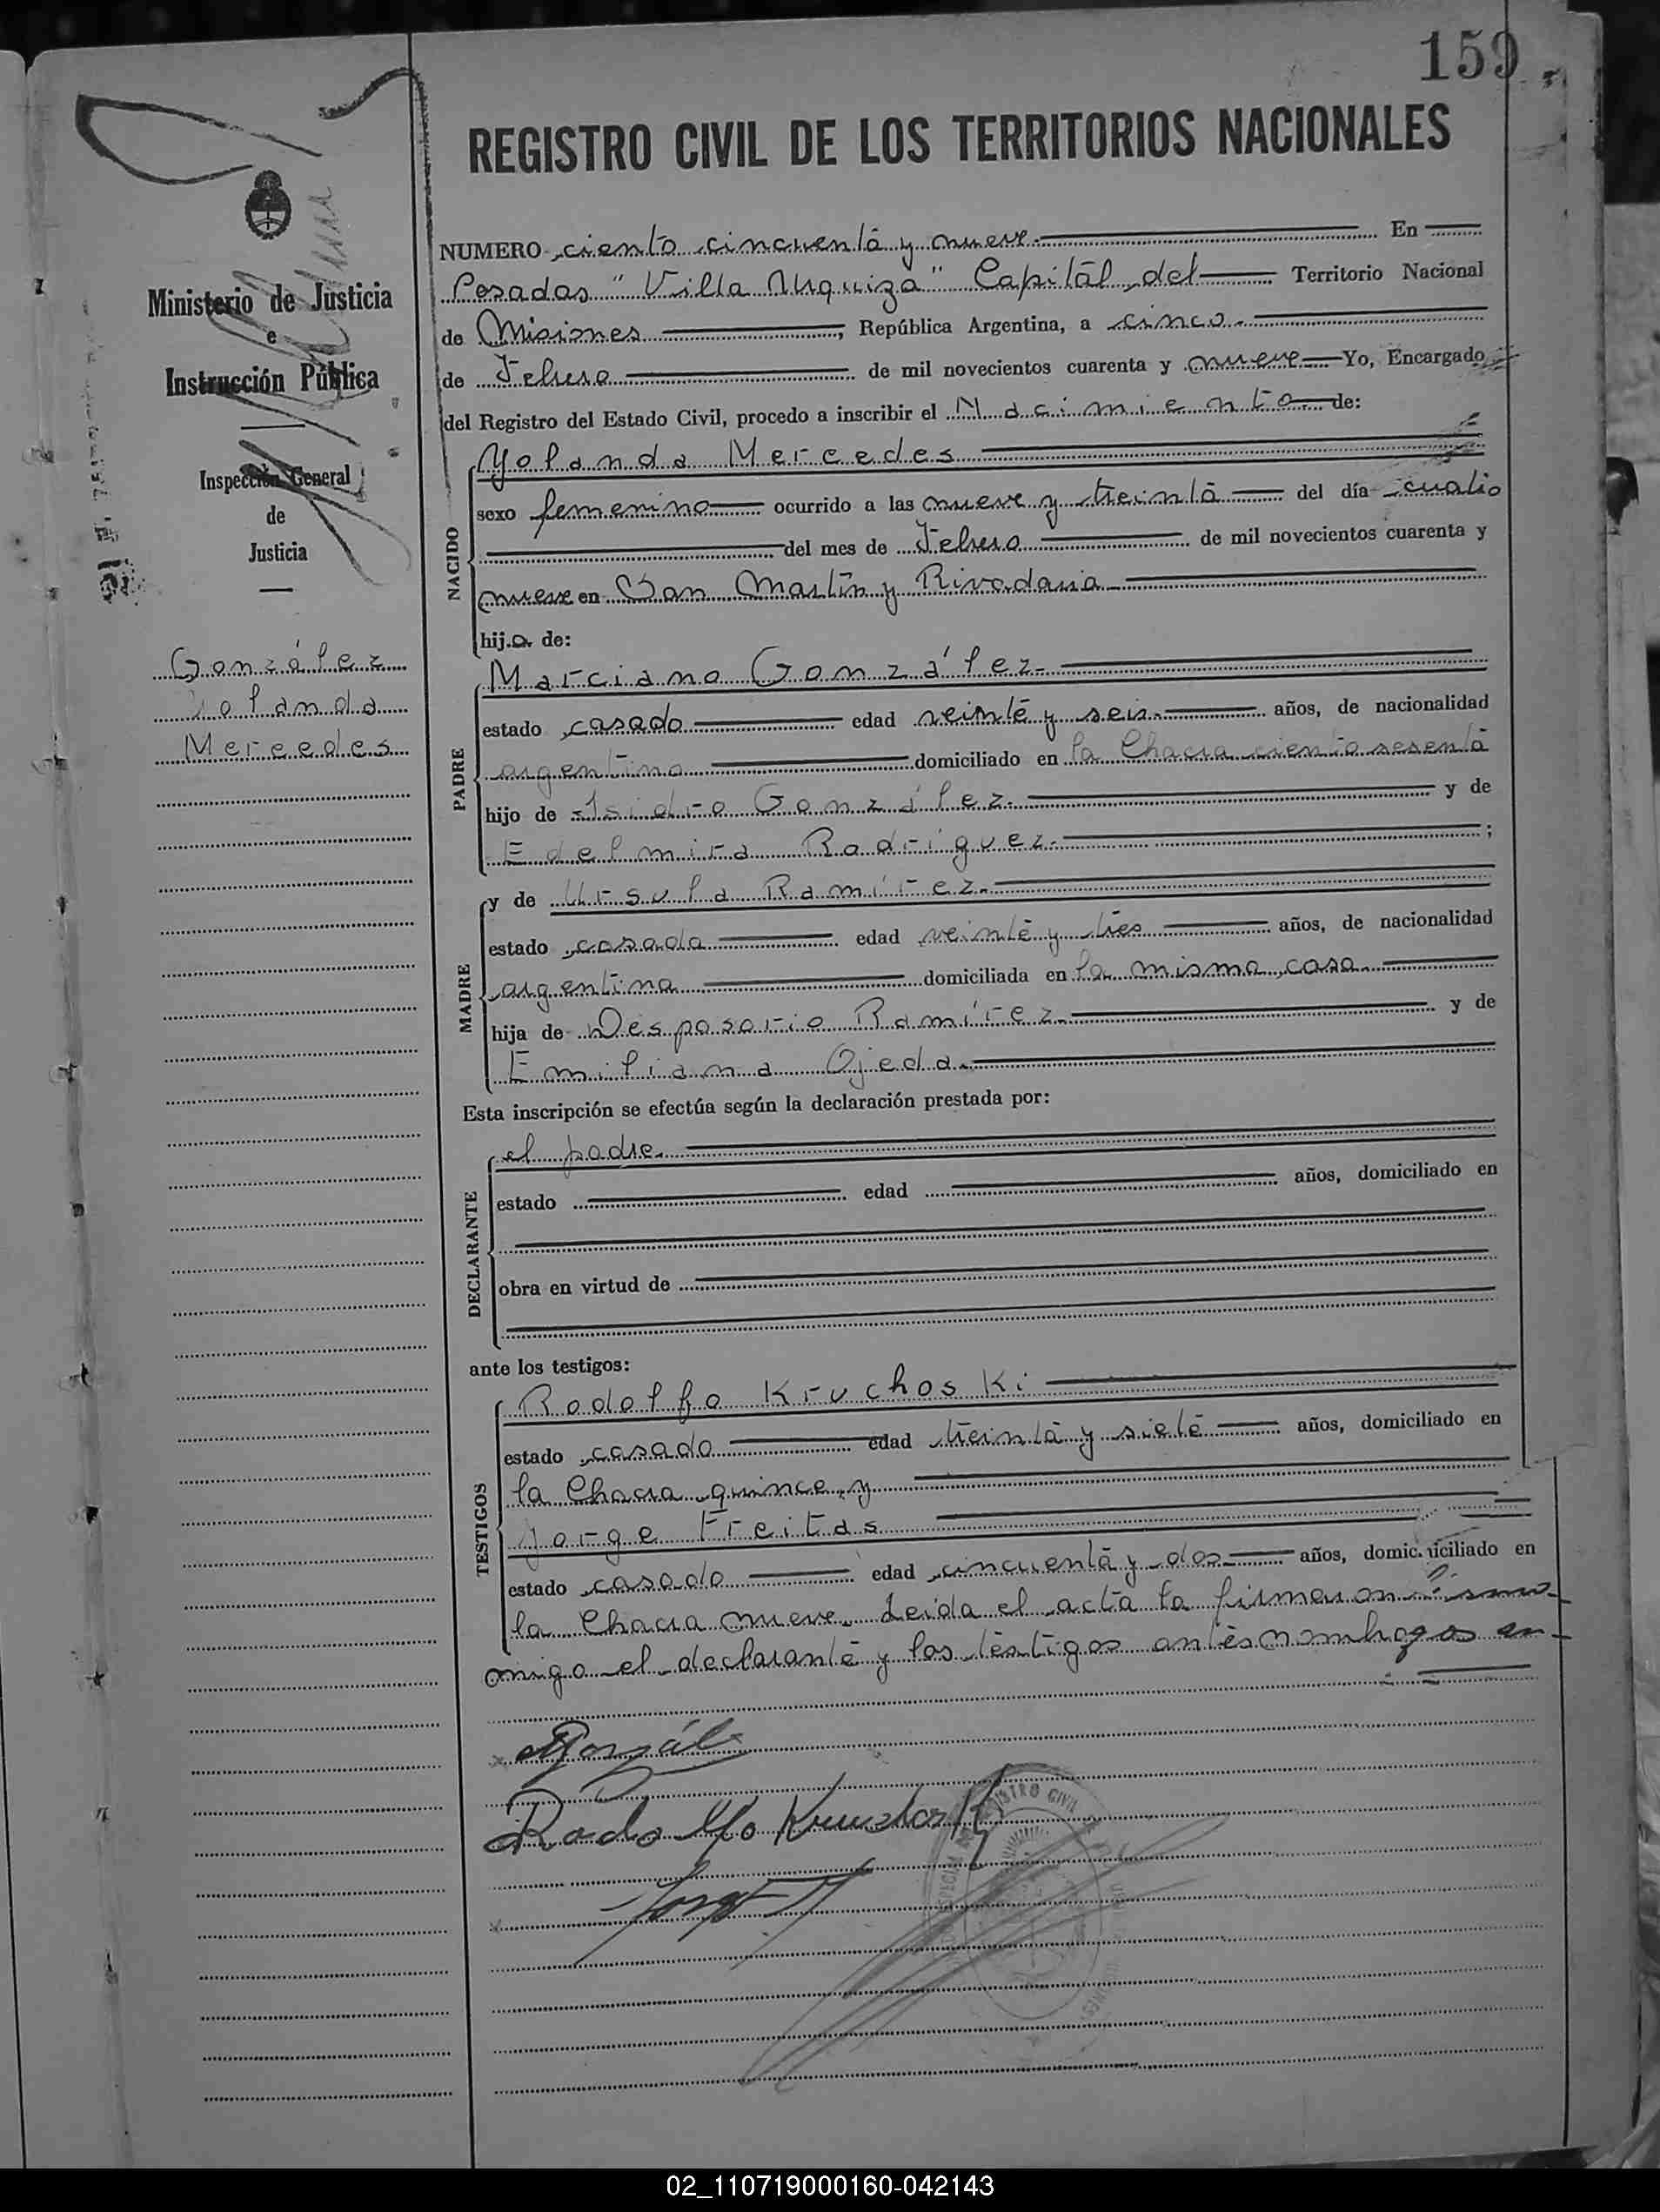 159
REGISTRO CIVIL DE LOS TERRITORIOS NACIONALES
Ministerio de Justicia
e
Instrucción Pública
Inspección General
de
Justicia
González
Yolanda
Mercedes
NUMERO ciento cincuenta y nueve. En
Posadas "Villa Urquiza" Capital del Territorio Nacional
de Misiones, República Argentina, a cinco.
de Febrero de mil novecientos cuarenta y nueve Yo, Encargado
del Registro del Estado Civil, procedo a inscribir el Nacimiento de:
NACIDO
Yolanda Mercedes
sexo femenino ocurrido a las nueve y treinta del día cuatro
del mes de Febrero de mil novecientos cuarenta y
nueve en San Martín y Rivadavia
hija de:
PADRE
Marciano González.
estado casado edad veinte y seis. años, de nacionalidad
argentino domiciliado en la Chacra ciento sesenta
hijo de Isidro González. y de
Edelmira Rodríguez. ;
MADRE
y de Ursula Ramírez.
estado casada edad veinte y tres años, de nacionalidad
argentina domiciliada en la misma casa.
hija de Desposorio Ramírez. y de
Emiliana Ojeda.
Esta inscripción se efectúa según la declaración prestada por:
DECLARANTE
el padre.
estado edad años, domiciliado en
obra en virtud de
ante los testigos:
TESTIGOS
Rodolfo Kruchoski
estado casado edad treinta y siete años, domiciliado en
la Chacra quince, y
Jorge Freitas
estado casado edad cincuenta y dos años, domiciliado en
la Chacra nueve. Leída el acta la firmaron
migo el declarante y los testigos antes
González
Rodolfo Kruchoski
Jorge
REGISTRO CIVIL
02_110719000160-042143